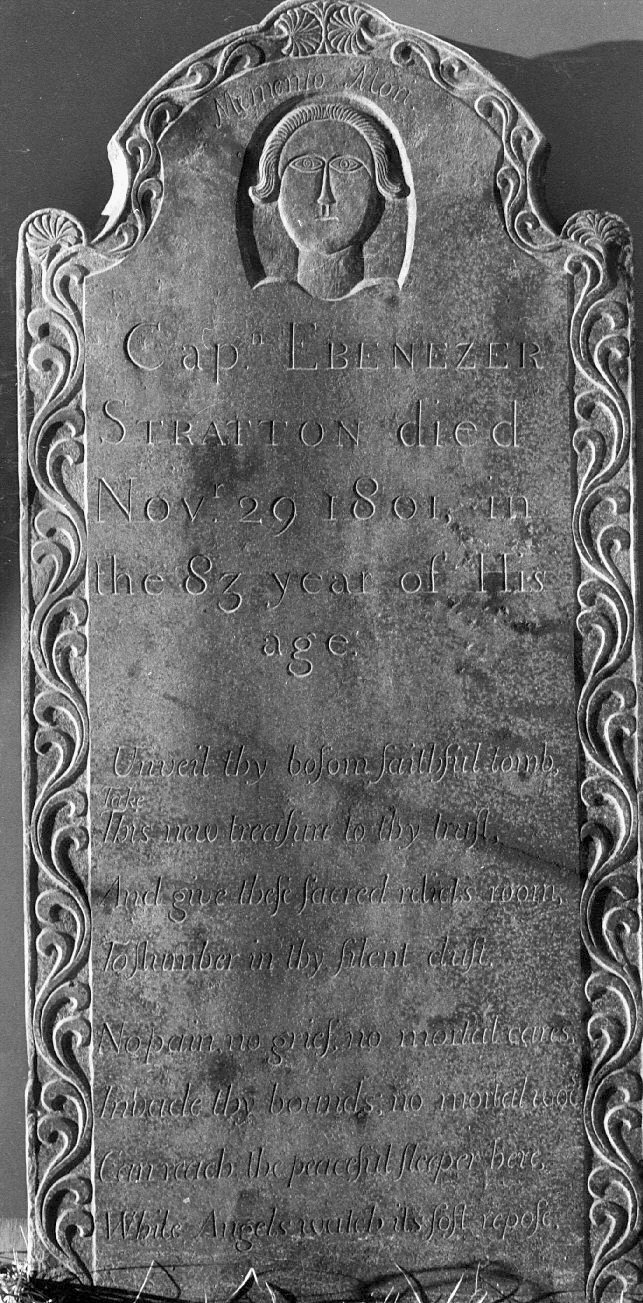 Memento Mori.
Capn. EBENEZER
STRATTON died
Novr. 29 1801, in
the 83 year of His
age.
Unveil thy boſom, faithful tomb,
Take
This new treaſure to thy truſt,
And give theſe ſacred relicks room,
To ſlumber in thy ſilent duſt.
No pain, no grief, no mortal cares,
Invade thy bounds; no mortal woes
Can reach the peaceful ſleeper here,
While Angels watch its ſoft repoſe.